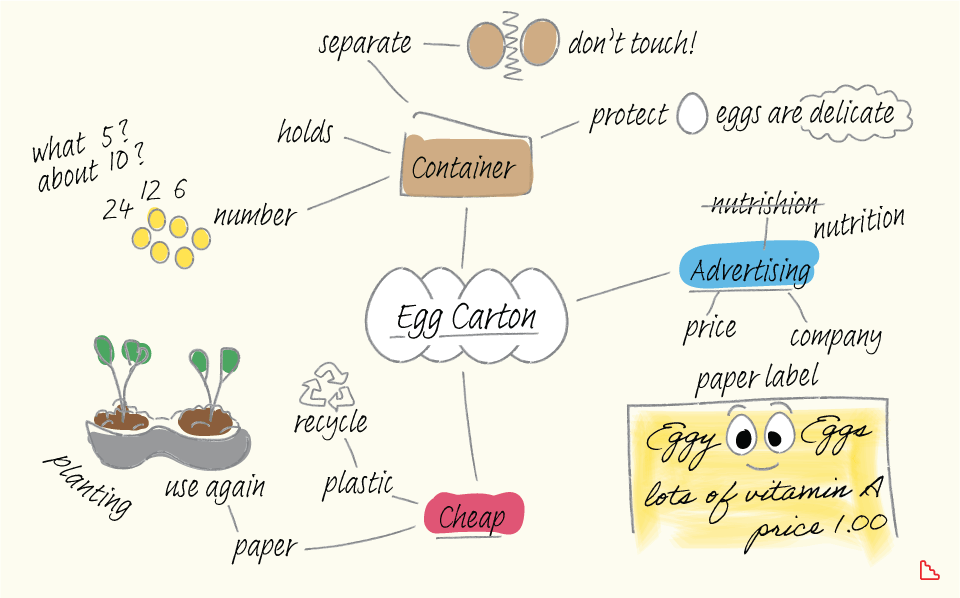 separate
don't touch!
holds
protect
eggs are delicate
Container
what 5?
about 10?
12 6
24
number
nutrishion
nutrition
Advertising
price
company
Egg Carton
paper label
Eggy Eggs
lots of vitamin A
price 1.00
recycle
plastic
Cheap
planting
use again
paper